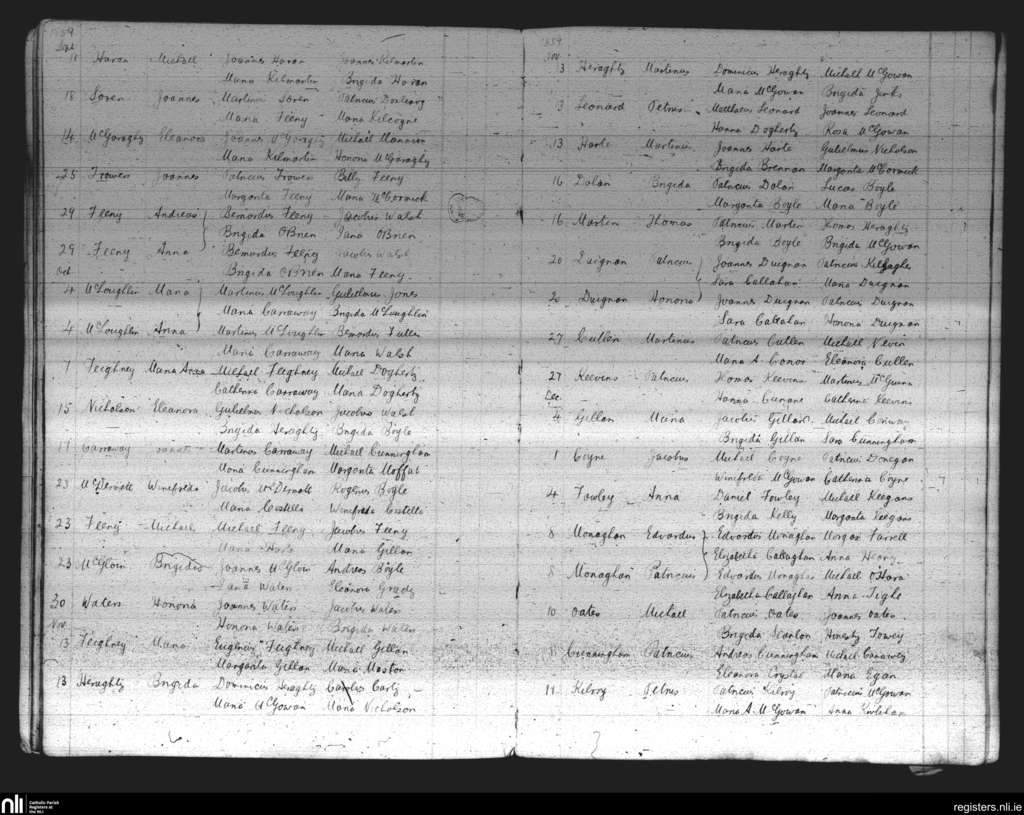 1859
Sept
11 Haran Michael Joannes Haran Joannes Kilmartin
Maria Kilmartin Brigida Haran
18 Soren Joannes Martinus Soren Patricius
Maria Feeny Maria
14 McGaraghty Eleanora Joannes McGaraghty Michael Mannion
Maria Kilmartin Honoria McGaraghty
25 Frowen Joannes Patricius Frowen Billy Feeny
Margarita Feeny Maria McCormick
29 Feeny Andreas Bernardus Feeny Jacobus Walsh
Brigida OBrien Jana OBrien
29 Feeny Anna Bernardus Feeney Jacobus Walsh
Oct Brigida OBrien Maria Feeny
4 McLoughlin Maria Martinus McLoughlin Gulielmus Jones
Maria Carraway Brigida McLoughlin
4 McLoughlin Anna Martinus McLoughlin Bernardus Fullen
Maria Carraway Maria Walsh
7 Feighney Maria Anna Michael Feighney Michael Dogherty
Catherina Carraway Maria Dogherty
15 Nicholson Eleanora Gulielmus Nicholson Jacobus Walsh
Brigida Heraghty Brigida Boyle
17 Carraway Martinus Carraway Michael Cunningham
Mona Cunningham Margarita Moffat
23 McDermott Winefreda Jacobus McDermott Rogerius Boyle
Maria Costello Winefreda Costello
23 Feeny Michael Michael Feeny Jacobus Feeny
Maria Harte Maria Gillan
23 McGloin Brigida Joannes McGloin Andreas Boyle
Jana Waters Eleanora Grady
30 Waters Honoria Joannes Waters Jacobus Waters
Nov Honora Waters Brigida Waters
13 Feighney Maria Eugenius Feighney Michael Gillan
Margarita Gillan Maria Maston
13 Heraghty Brigida Dominicus Heraghty Carolus Carty
Maria McGowan Maria Nicholson
1859
Nov
13 Heraghty Martinus Dominicus Heraghty Michael McGowan
Maria McGowan Brigida Jinks
13 Leonard Petrus Matthaeus Leonard Joannes Leonard
Hanna Dogherty Rosa McGowan
13 Harte Martinus Joannes Harte Gulielmus Nicholson
Brigida Brennan Margarita McCormick
16 Dolan Brigida Patricius Dolan Lucas Boyle
Margarita Boyle Maria Boyle
16 Martin Thomas Patricius Martin Thomas Heraghty
Brigida Boyle Brigida McGowan
20 Duignan Patricius Joannes Duignan Patricius
Sara Callahan Maria Duignan
20 Duignan Honoria Joannes Duignan Patricius Duignan
Sara Callahan Honoria Duignan
27 Cullen Martinus Patricius Cullen Michael Nevin
Maria A. Conor Eleanora Cullen
27 Keevins Patricius Thomas Keevins Martinus McGuinn
Dec Hanna Cunane Catherina Keevins
4 Gillan Maria Jacobus Gillan Michael Conway
Brigida Gillan Sara Cunningham
1 Coyne Jacobus Michael Coyne Patricius Donegan
Winifreda McGowan Catherina Coyne
4 Towley Anna Daniel Towley Michael Keegans
Brigida Kelly Margarita Keegans
8 Monaghan Edvardus Edvardus Monaghan Morgan Farrell
Elizabetha Callaghan Anna Heany
8 Monaghan Patricius Edvardus Monaghan Michael O'Hara
Elizabetha Callaghan Anna Tighe
10 Oates Michael Patricius Oates Joannes Oates
Brigida Scanlon Honoria Towey
11 Cunningham Patricius Andreas Cunningham Michael Conaway
Eleanora Crystal Maria Egan
11 Kilroy Petrus Patricius Kilroy Patricius McGowan
Maria A. McGowan Anna
nli Catholic Parish
Registers at
the NLI
registers.nli.ie